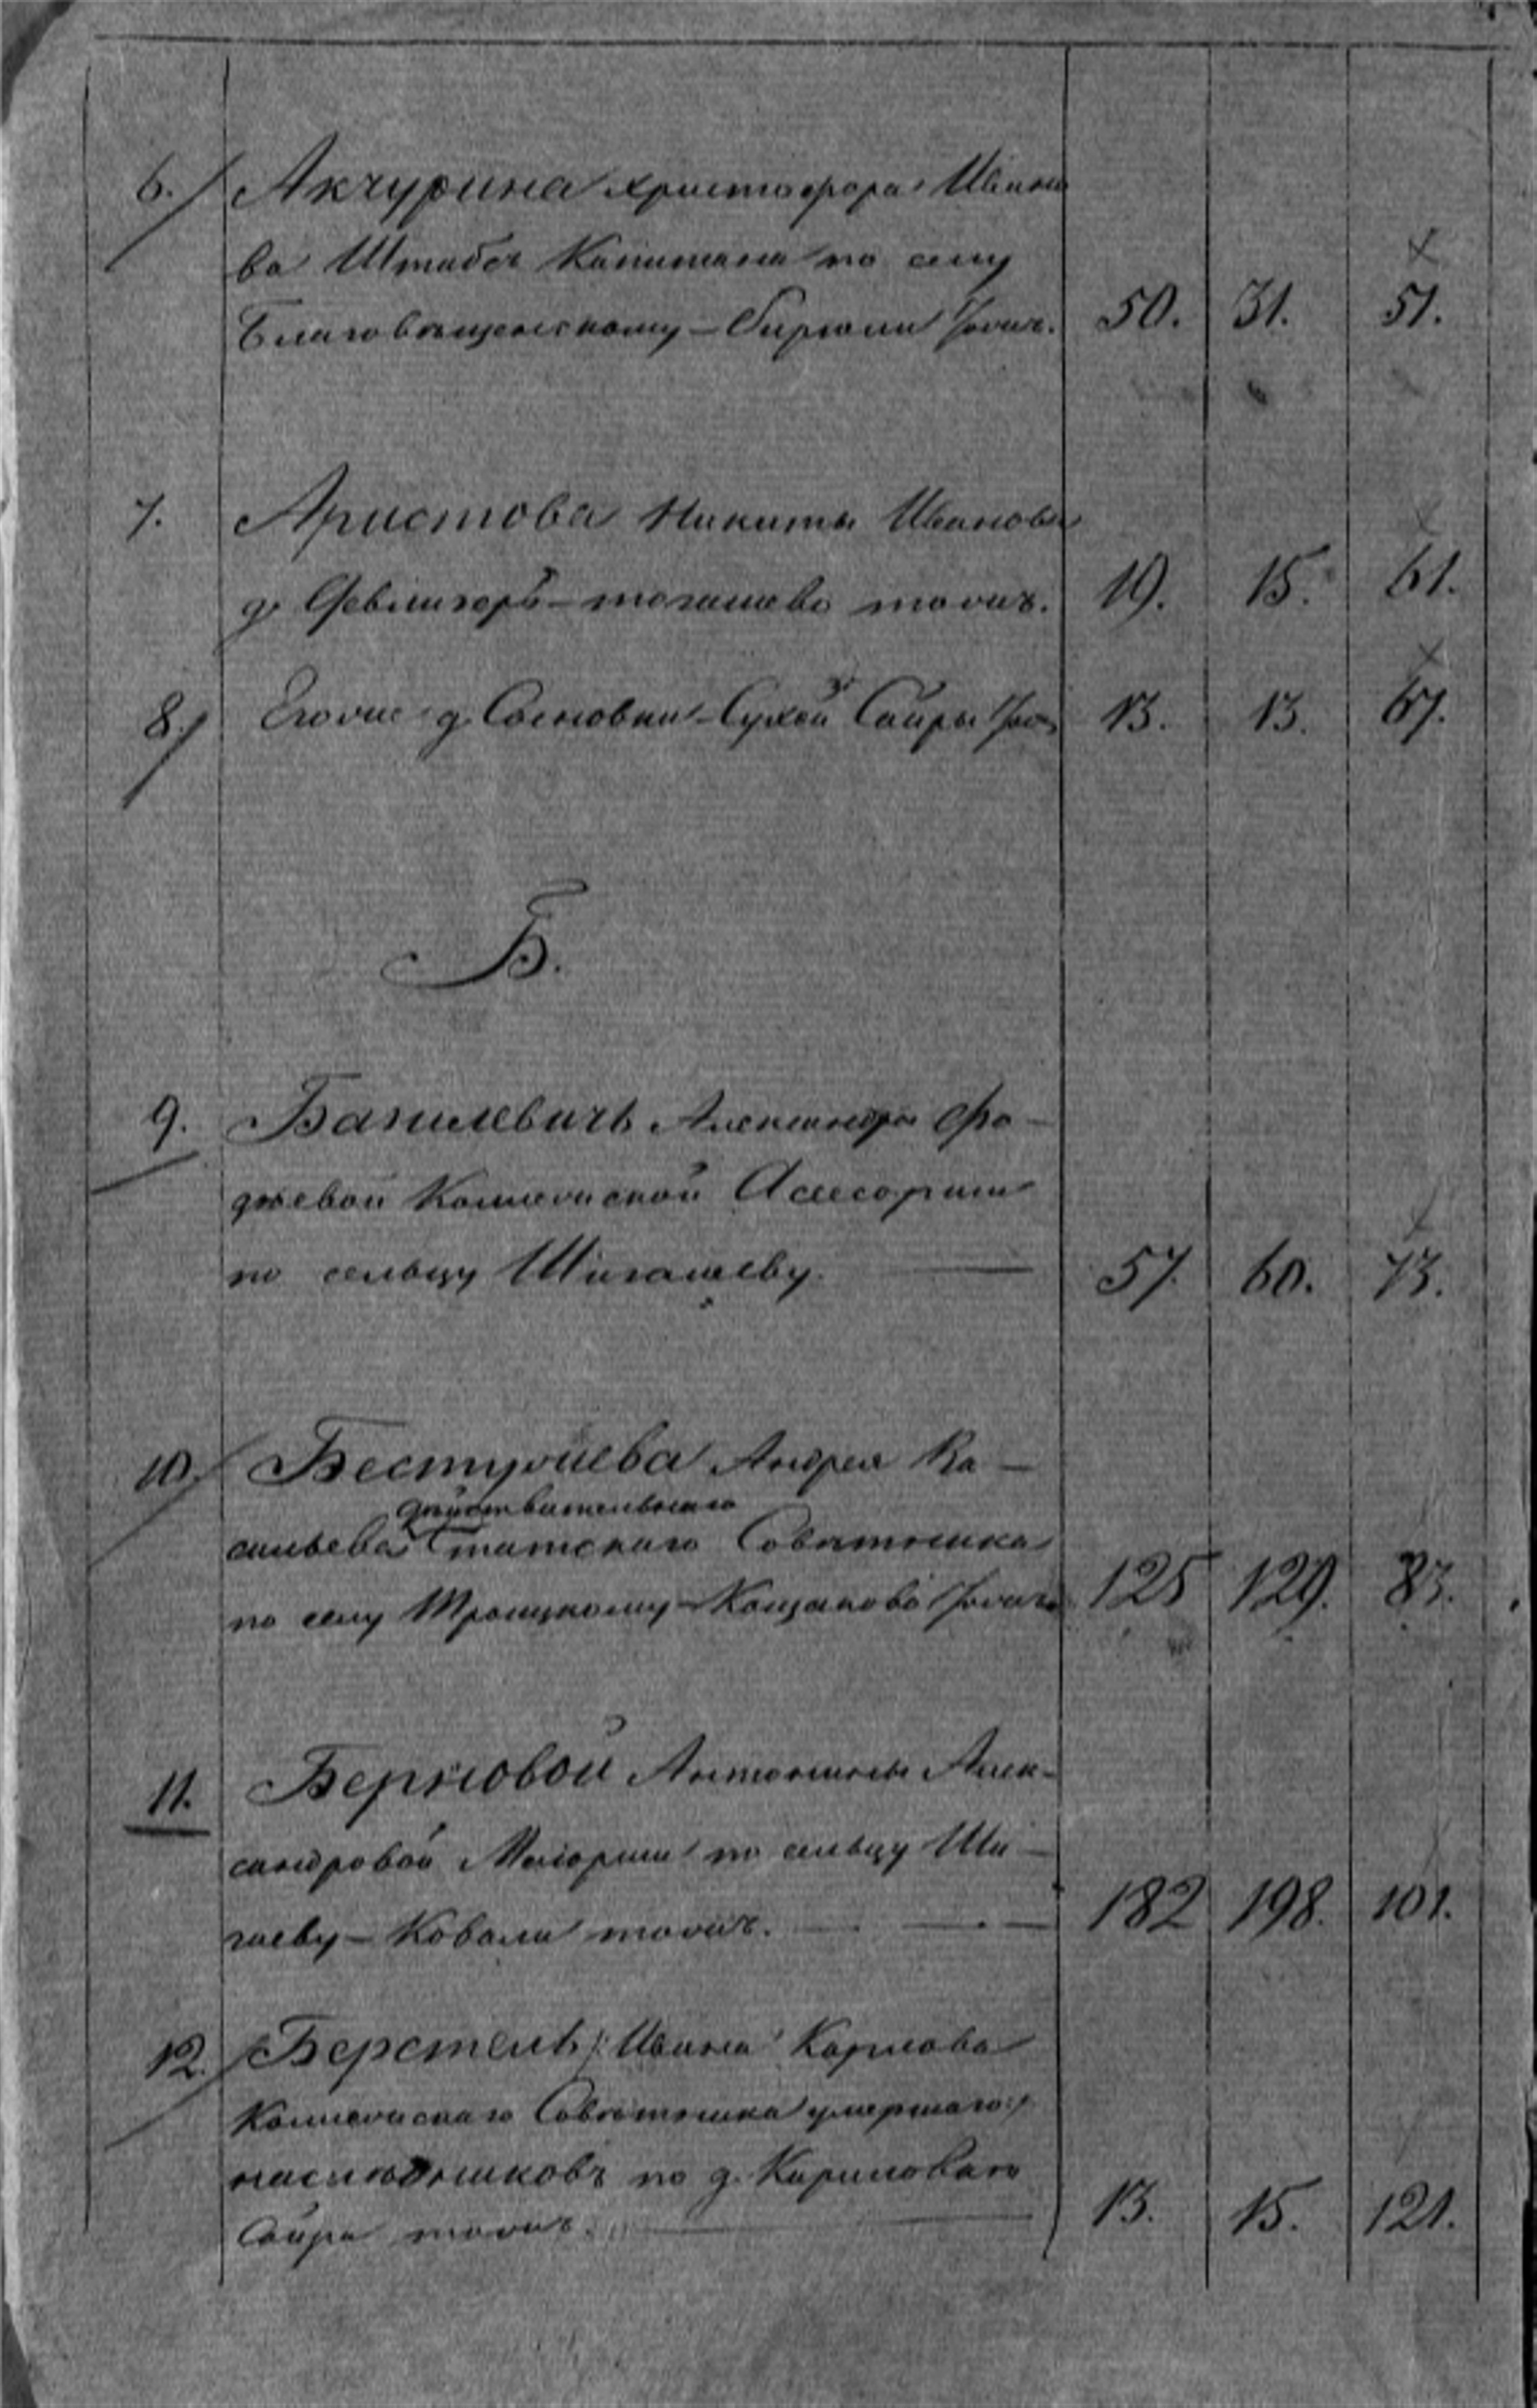 6. Акчурина Христофора Ивано
ва Штабсъ Капитана по селу
Благовѣщенскому – Бирюли тожъ. 50. 31. 51.
7. Аристова Никиты Иванова
д. тогашево тожъ. 19. 15. 61.
8. Егоже д. Сосновки – Сухой Саиры 13. 13. 67.
Б.
9. Базилевичь Александры Фа–
дѣевой Коллежской Асесорши
по сельцу Шигалеву. 57. 60. 73.
10. Бестужева Андрея Ва–
дѣйствительнаго
сильева Статскаго Совѣтника
по селу Троицкому – Кощаково тожъ 125 129. 83.
11. Берновой Антонины Алек–
сандровой Маіорши по сельцу Ши–
гаеву – Ковали тожъ. 182 198. 101.
12. Берстель /: Ивана Карлова
Коллежскаго Совѣтника умершаго :/
наслѣдниковъ по д. Кириловаго
Саира тожъ. 13. 15. 121.